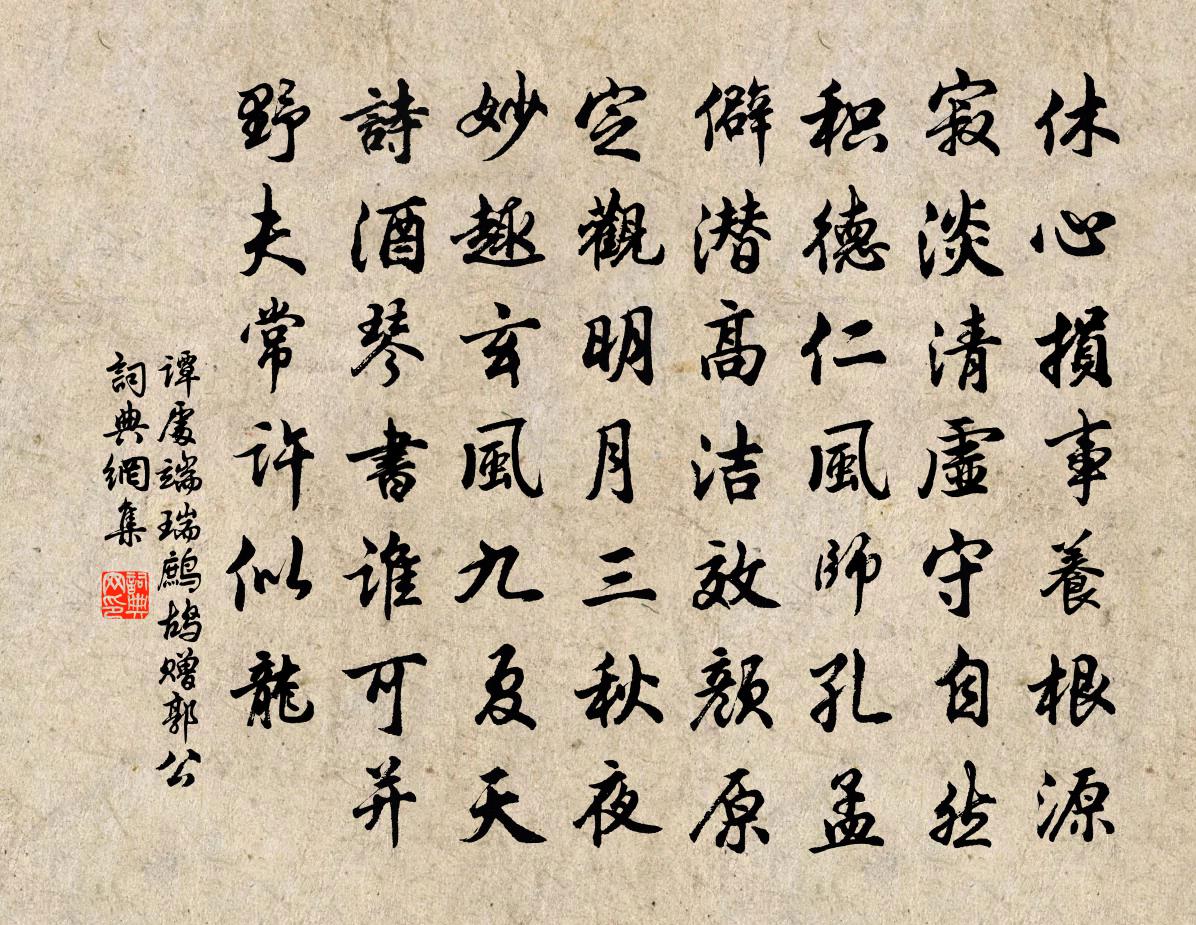 休心損事養根源
寂淡清虛守自然
积德仁風師孔孟
僻潜高洁效顏原
定觀明月三秋夜
妙趣玄風九夏天
詩酒琴書誰可并
野夫常許似龍
谭處端瑞鷓鴣赠郭公
詞典網集
詞典网印